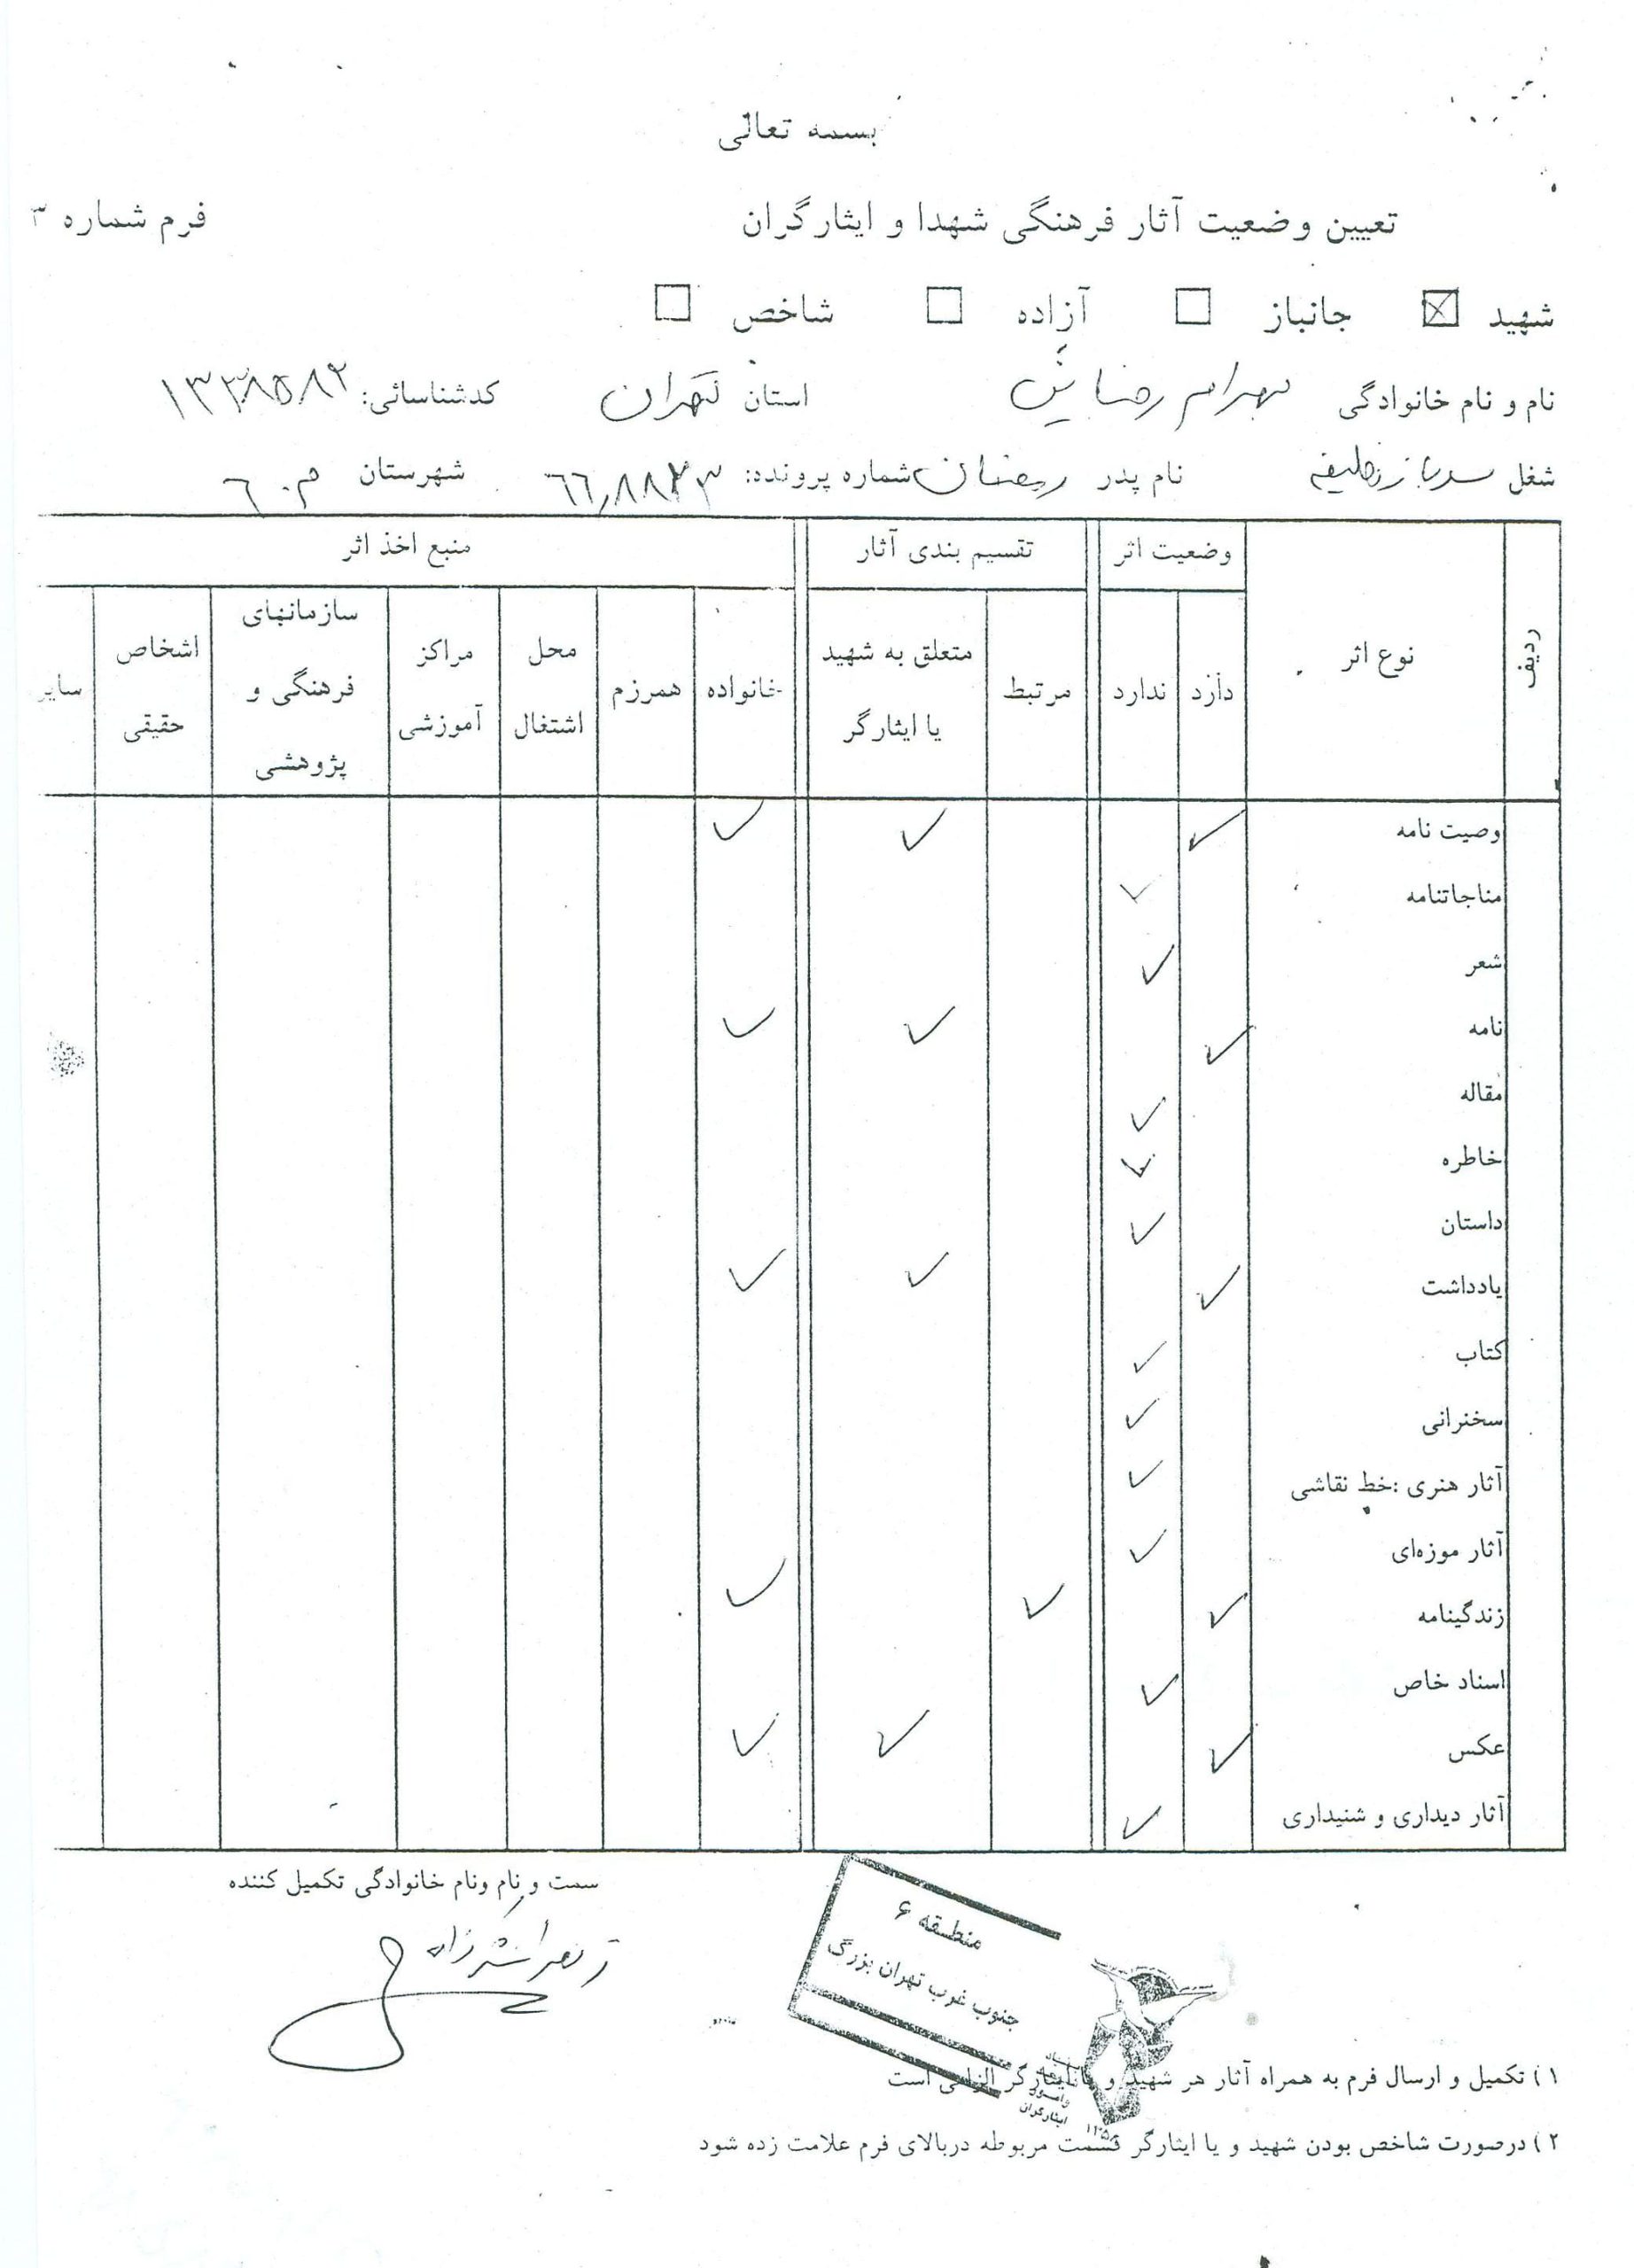 بسمه تعالی
تعیین وضعیت آثار فرهنگی شهدا و ایثارگران
فرم شماره ۳
شهید ☒ جانباز ☐ آزاده ☐ شاخص ☐
نام و نام خانوادگی بهرام رضایی استان تهران کدشناسائی: ۱۳۳۸۵۸۲
شغل سرباز وظیفه نام پدر رمضان شماره پرونده: شهرستان م. ٦
ردیف نوع اثر وضعیت اثر تقسیم بندی آثار منبع اخذ اثر
دارد ندارد مرتبط متعلق به شهید یا ایثارگر خانواده همرزم محل اشتغال مراکز آموزشی سازمانهای فرهنگی و پژوهشی اشخاص حقیقی سایر
وصیت نامه ✓ ✓ ✓
مناجاتنامه ✓
شعر ✓
نامه ✓ ✓ ✓
مقاله ✓
خاطره ✓
داستان ✓
یادداشت ✓ ✓ ✓
کتاب ✓
سخنرانی ✓
آثار هنری :خط نقاشی ✓
آثار موزه‌ای ✓
زندگینامه ✓ ✓ ✓
اسناد خاص ✓
عکس ✓ ✓ ✓
آثار دیداری و شنیداری ✓
سمت و نام ونام خانوادگی تکمیل کننده
منطقه ۶
جنوب غرب تهران بزرگ
۱ ) تکمیل و ارسال فرم به همراه آثار هر شهید و یا ایثارگر الزامی است
۲ ) درصورت شاخص بودن شهید و یا ایثارگر قسمت مربوطه دربالای فرم علامت زده شود